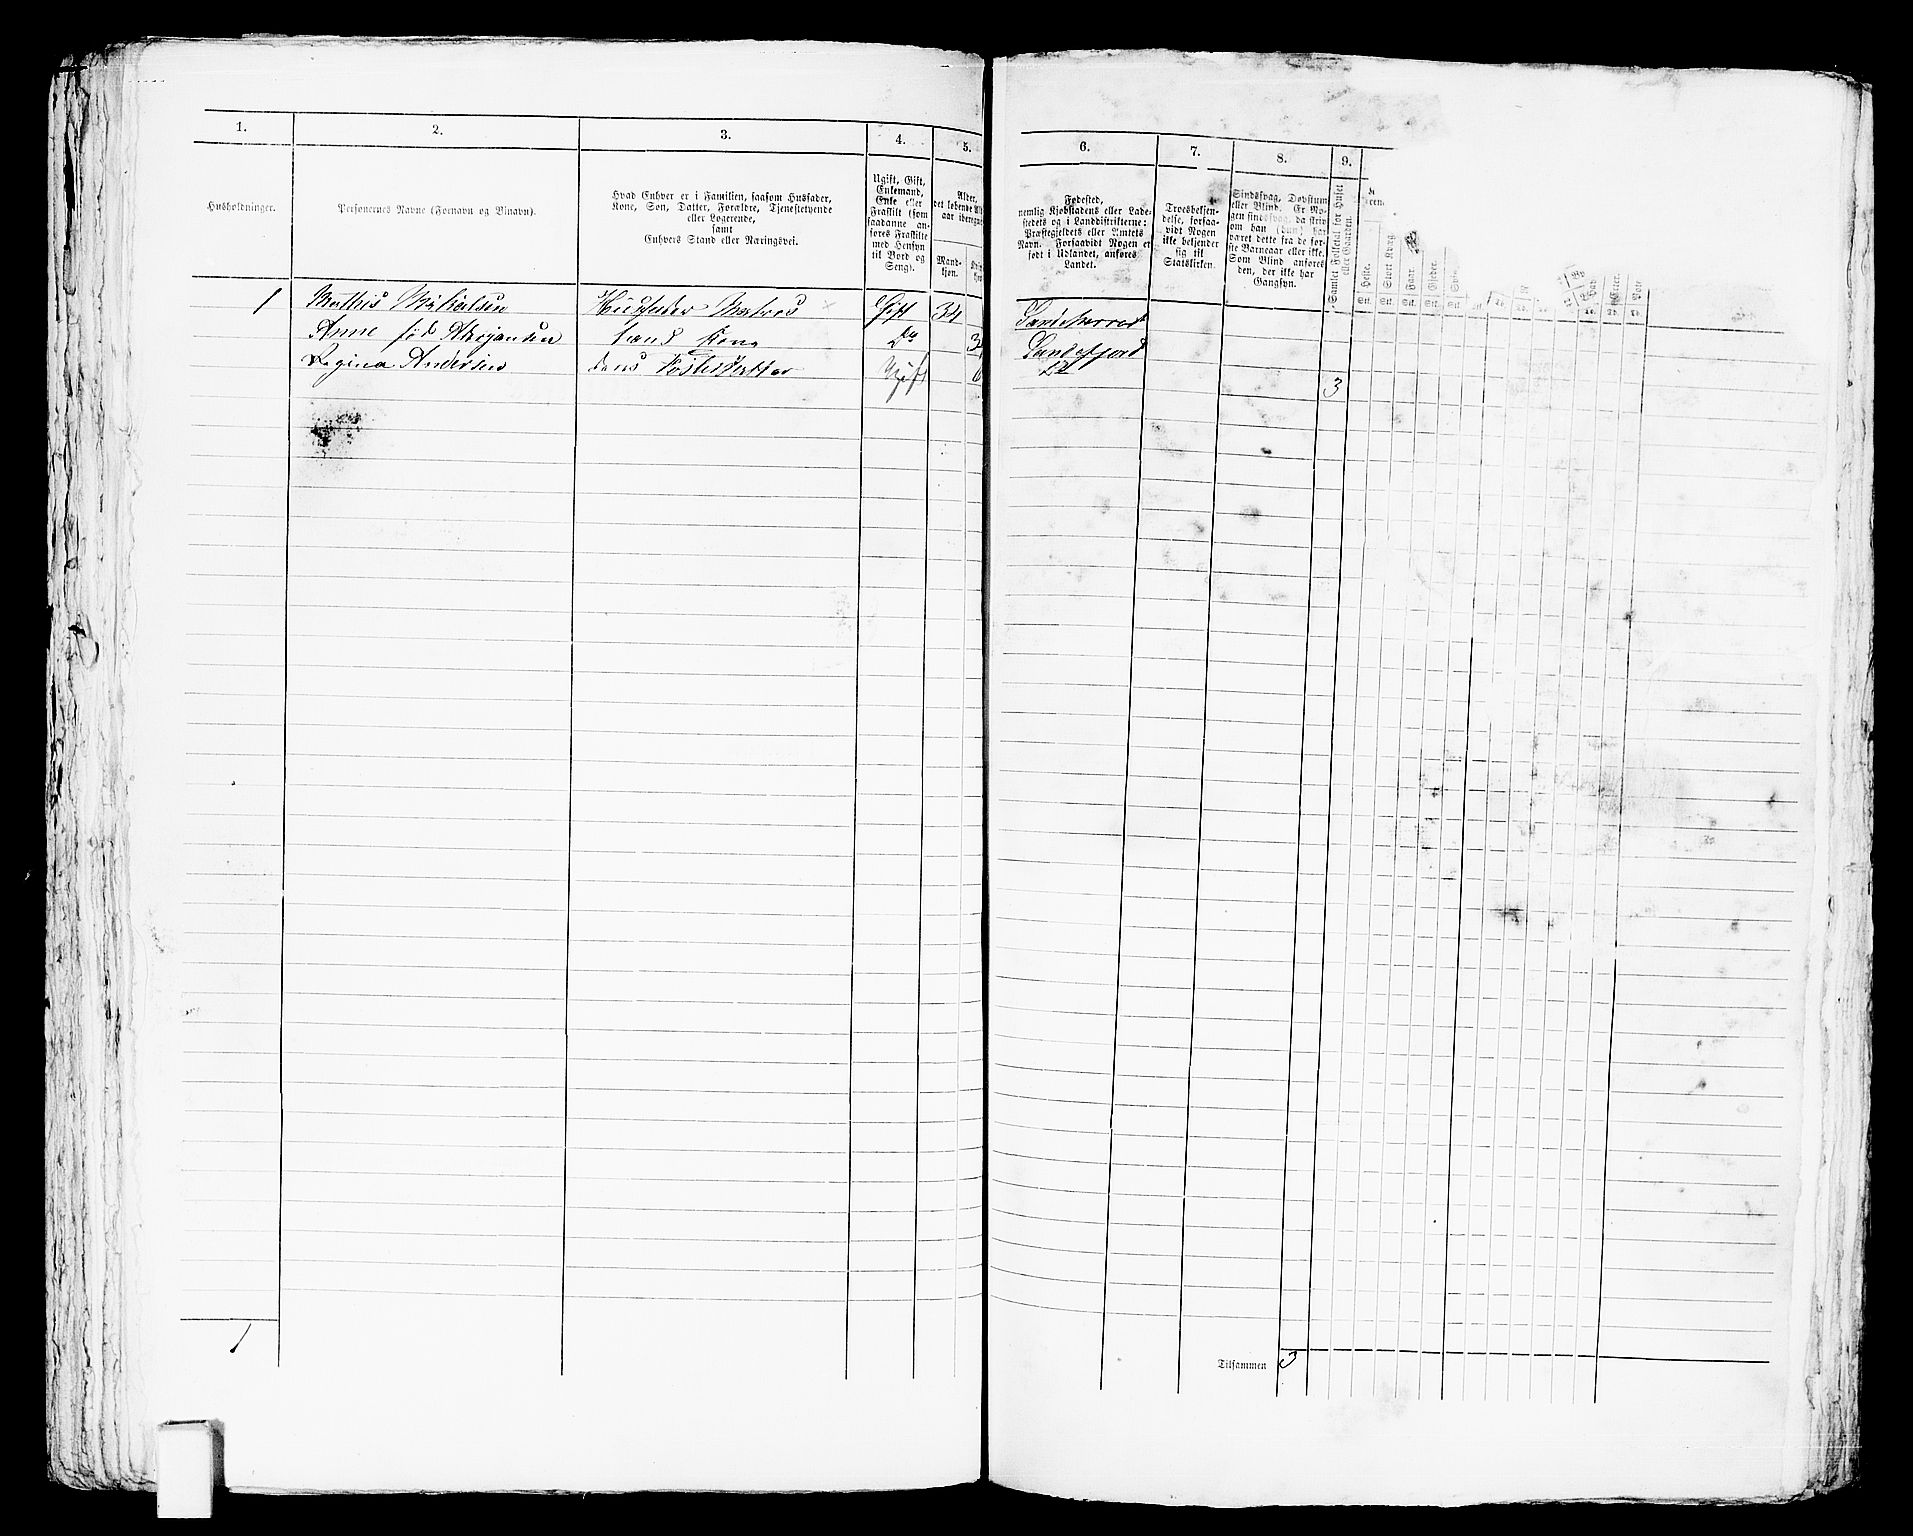 1.
2.
3.
4.
5.
Husholdninger.
Personernes Navne (Fornavn og Binavn).
Hvad Enhver er i Familien, saasom Husfader,
Kone, Søn, Datter, Forældre, Tjenestetyende
eller Logerende,
samt
Enhvers Stand eller Næringsvei.
Ugift, Gift,
Enkemand,
Enke eller
Fraskilt (som
saadanne an-
føres Fraskilte
med Hensyn
til Bord og
Seng).
Alder,
det løbende Al
aar iberegne
Mand-
kjøn.
1 Mathis Mikkelsen Huusfader Matros Gift 34
Anne fød hans Kone Do 3
Regina Andersen deres Ugift
1
6.
7.
8.
9.
Fødested,
nemlig Kjøbstadens eller Lade-
stedets og i Landdistrikterne:
Præstegjeldets eller Amtets
Navn. Forsaavidt Nogen er
født i Udlandet, anføres
Landet.
Troesbekjen-
delse, forsaa-
vidt Nogen
ikke bekjender
sig til
Statskirken.
Sindssvag, Døvstum
eller Blind. Er No-
gen sindssvag, da skriv
om han (hun) har
været dette fra de før-
ste Barneaar eller ikke.
Som Blind anføres
den, der ikke har
Gangsyn.
Samlet Folketal for Huset
eller Gaarden.
Heste.
Stort Kvæg.
Faar.
Gjeder.
Svin.
Stk. Stk. Stk. Stk. Stk.
Sandeherred
Sandefjord
Do
3
Tilsammen 3